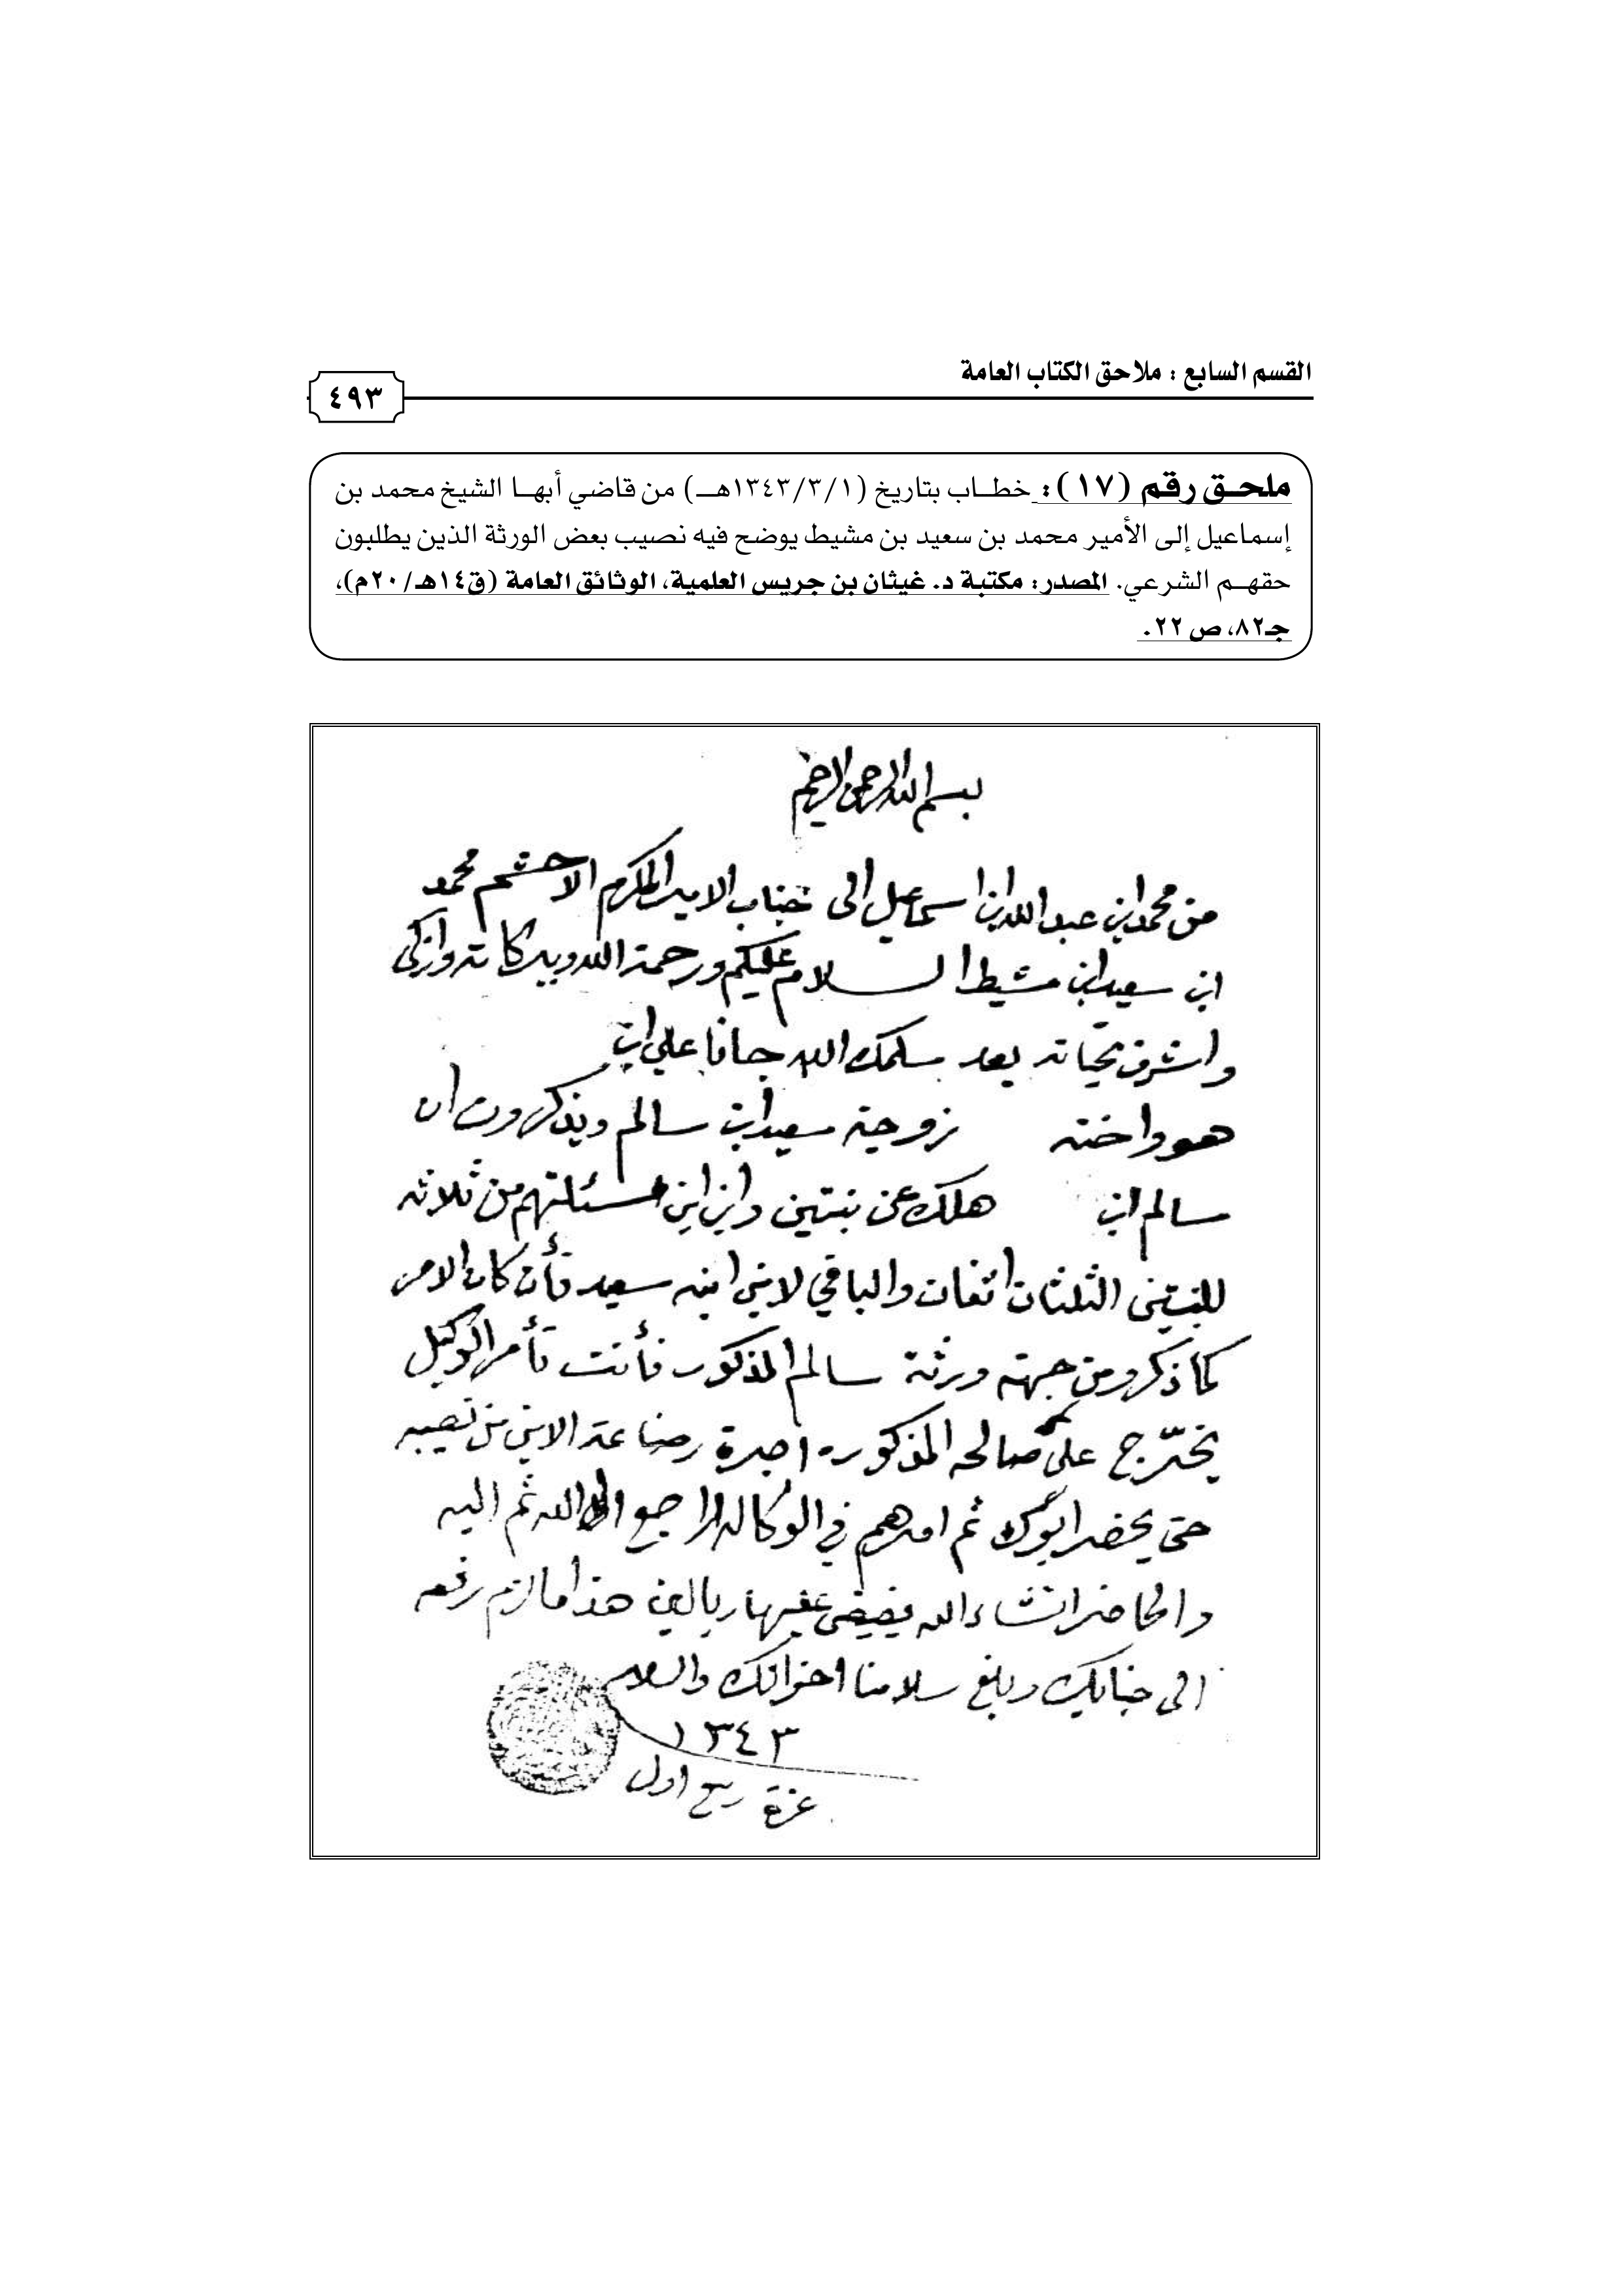 القسم السابع : ملاحق الكتاب العامة
٤٩٣
ملحـق رقم (١٧): خطـاب بتاريخ (١٣٤٣/٣/١هــ) من قاضي أبهـا الشيخ محمد بن
إسماعيل إلى الأمير محمد بن سعيد بن مشيط يوضح فيه نصيب بعض الورثة الذين يطلبون
حقهـم الشرعي. المصدر: مكتبة د. غيثان بن جريس العلمية، الوثائق العامة (ق١٤هـ/٢٠م)،
جـ٨٢، ص ٢٢.
بسم الله الرحمن الرحيم
من محمد ابن عبد الله ابن اسماعيل الى جناب الامير المكرم الاحشم محمد
ابن سعيد ابن مشيط السلام عليكم ورحمة الله وبركاته وازكى
واشرف تحياته بعد سلمك الله جانا علي ابن
هو واخته زوجة سعيد ابن سالم ويذكرون ان
سالم ابن هلك عن بنتين وابن ابن مسئلتهم من ثلاثه
للبنتين الثلثان اثنان والباقي لابن ابنه سعيد فأن كان الامر
كما ذكرو من جهة ورثة سالم المذكور فأنت تأمر الوكيل
يخرّج على صالحه المذكوره اجرة رضاعة الابن من نصيبه
حتى يحضر ابوك ثم امرهم في الوكاله راجع الى الله ثم اليه
والحاضر انشاء الله هذا ما لزم رفعه
الى جنابك وبلغ سلامنا اخوانك والسلام
١٣٤٣
غرة ربيع اول